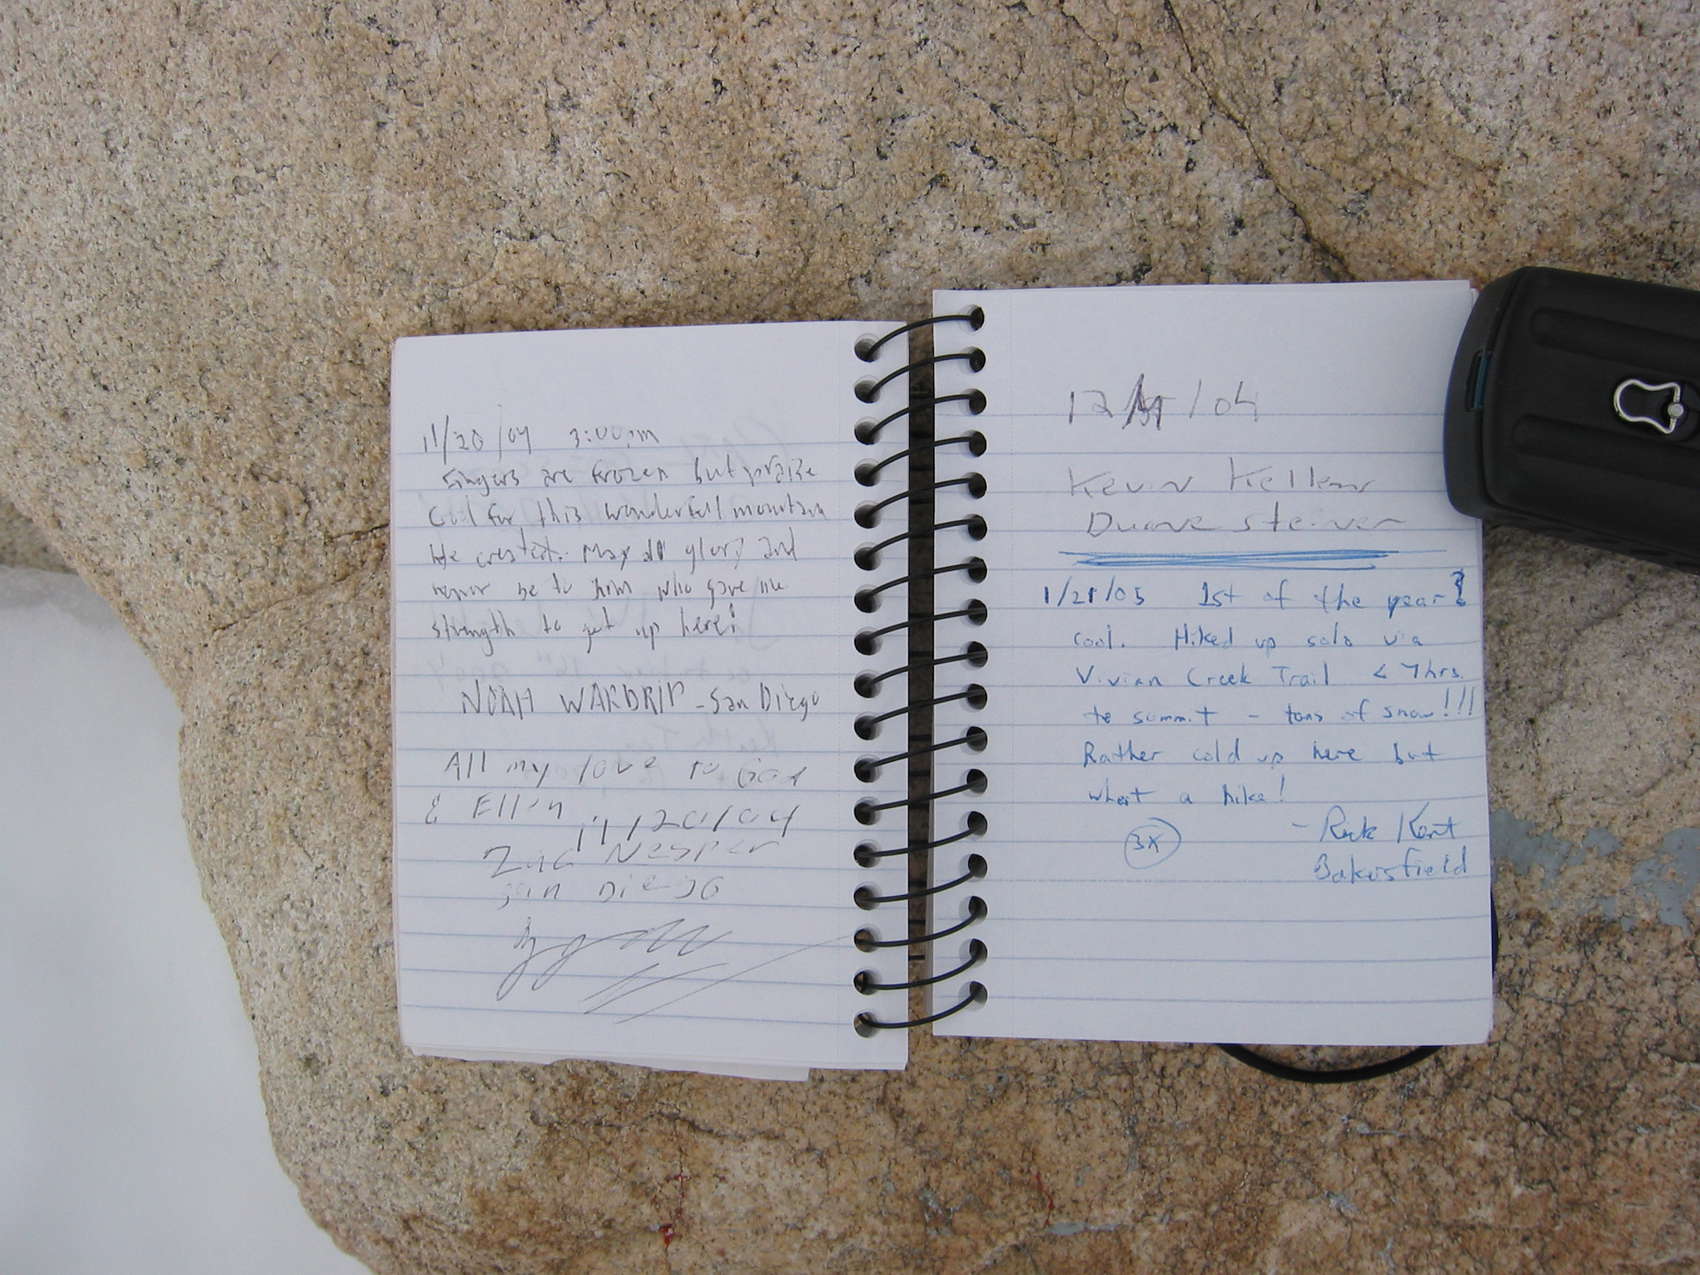 11/20/04 3:00pm
fingers are frozen but praise
God for this wonderfull mountain
He created. May all glory and
honor be to him who gave me
strength to get up here!
NOAH WARDRIP - San Diego
All my love to God
& Ellin 11/20/04
Zac Nesper
San Diego
12/ /04
Kevin Kellems
Duane Steiner
1/21/05 1st of the year?
Cool. Hiked up solo via
Vivian Creek Trail < 7hrs.
to summit - tons of snow!!!
Rather cold up here but
what a hike!
3X
- Rick Kent
Bakersfield